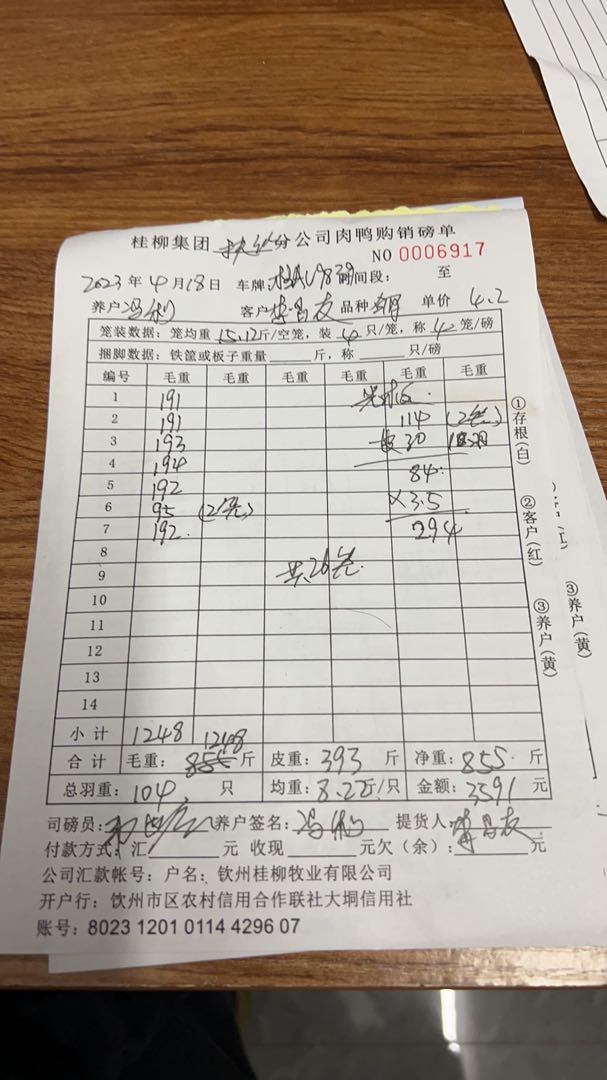 桂柳集团 分公司肉鸭购销磅单
NO 0006917
2023年4月18日 车牌: 时间段: 至
养户 冯 客户 李昌友 品种 单价 4.2
笼装数据:笼均重 15.12 斤/空笼,装 4 只/笼,称 4 笼/磅
捆脚数据:铁筐或板子重量 斤,称 只/磅
编号 毛重 毛重 毛重 毛重 毛重 毛重
1 191
2 191 114 (2笼)
3 193 30
4 194 84
5 192
6 95 (2笼) ×3.5
7 192 294
8
9 共26笼
10
11
12
13
14
小计 1248 1248
合计 毛重: 斤 皮重:393 斤 净重:855 斤
总羽重:104 只 均重:8.22斤/只 金额:3591 元
司磅员: 养户签名:冯 提货人:李昌友
付款方式:汇 元 收现 元欠(余): 元
公司汇款帐号:户名:钦州桂柳牧业有限公司
开户行:钦州市区农村信用合作联社大垌信用社
账号:8023 1201 0114 4296 07
①存根(白)
②客户(红)
③养户(黄)
③养户(黄)